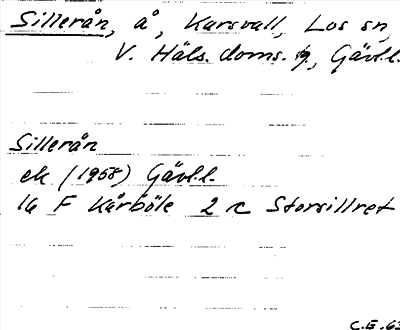 Sillerån, å, Karsvall, Los sn,
V. Häls. doms. , Gävl.l.
Sillerån
ek (1958) Gävl.l.
16 F Kårböle 2 c Storsillret
C.E. 63